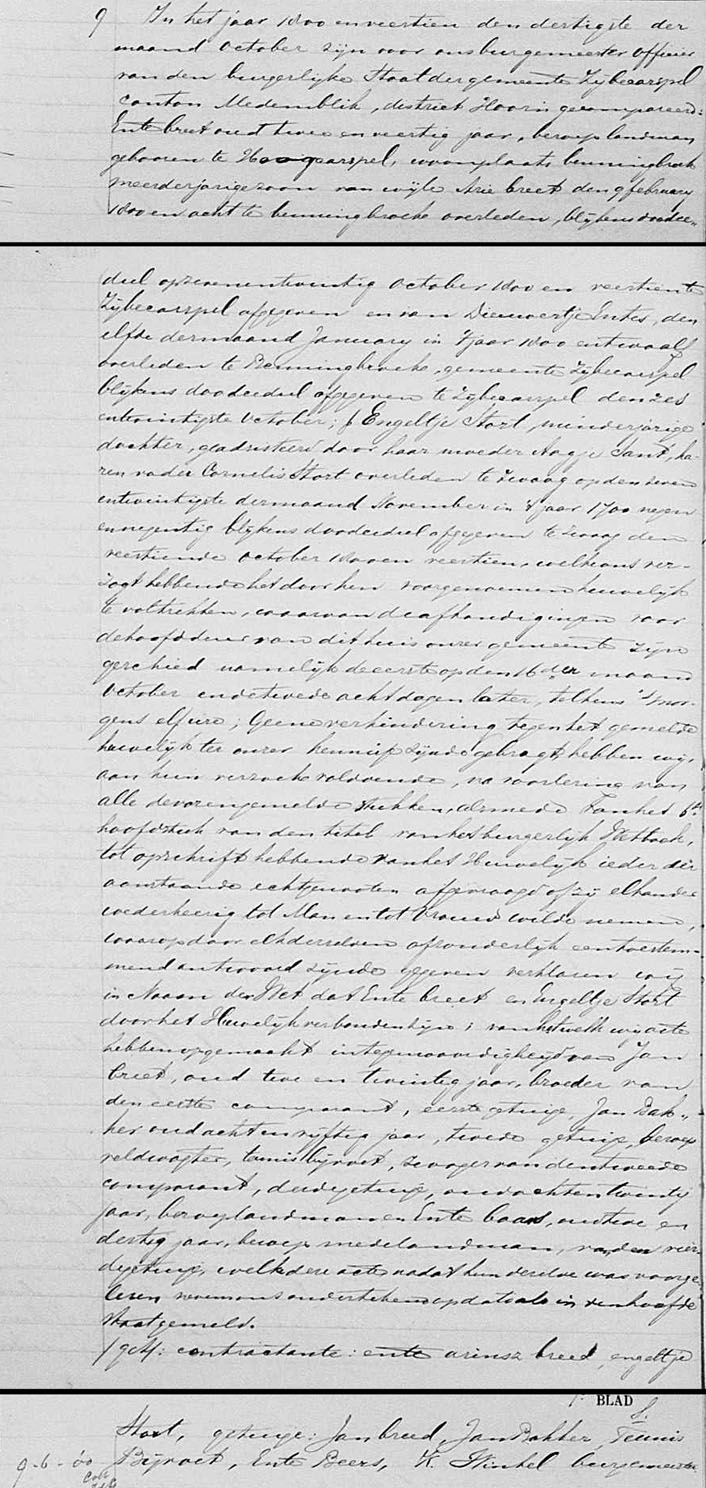 9 In het jaar 1800 en veertien den dertigste der
maand October zijn voor ons burgemeester Officier
van den burgerlijke Staat der gemeente Zijbecarspel
canton Medemblik, district Hoorn gecompareerd:
Ente breet oud twee en veertig jaar, beroep landman
gebooren te Hoogcarspel, woonplaats benningbroek
meerderjarige zoon van wijle Arie breet den 9 february
1800 en acht te benningbroek overleden, blijkens doodce-
deel op zevenentwintig October 1800 en veertien te
Zijbecarspel afgegeven en van Dieuwertje Entes, den
elfde der maand January in 't jaar 1800 en twaalf
overleden te Benningbroek, gemeente Zijbecarspel
blijkens doodcedeel afgegeven te Zijbecarspel den zes
entwintigste October; & Engeltje Stort, minderjarige
dochter, geadsisteerd door haar moeder Aagje Sant, ha-
ren vader Cornelis Stort overleden te Zwaag op den zeven
entwintigste der maand November in 't jaar 1700 negen
en negentig blijkens doodcedeel afgegeven te Zwaag den
veertiende October 1800 en veertien, welke ons ver-
zogt hebbende het door hen voorgenomen huwelijk
te voltrekken, waarvan de afkondigingen voor
de hoofddeur van dit huis onzer gemeente zijn
geschied namelijk de eerste op den 16der maand
October en de twede acht dagen later, telkens 's mor-
gens elf ure; Geene verhindering tegen het gemelde
huwelijk ter onzer kennisse zijnde gebragt, hebben wij,
aan hun verzoek voldoende, na voorlezing van
alle de vorengemelde stukken, alsmede van het 6de
hoofdstuk van den titel van het burgerlijk Wetboek,
tot opschrift hebbende van het Huwelijk ieder der
aanstaande echtgenooten afgevraagd of zij elkander
wederkeerig tot Man en tot Vrouw wilde nemen,
waarop door elk derzelven afzonderlijk een toestem-
mend antwoord zijnde gegeven verklaren wij
in Naam der Wet dat Ente breet en Engeltje Stort
door het Huwelijk verbonden zijn; van hetwelk wij acte
hebben opgemaakt in tegenwoordigheyd van Jan
breet, oud twe en twintig jaar, broeder van
den eerste comparant, eerste getuige, Jan Bak-
ker oud acht en vijftig jaar, twede getuige, beroep
veldwagter, teunis bijvoet, zwager van den tweede
comparant, derde getuige, oud acht en twintig
jaar, beroep landman en Ente baars, oud twe en
dertig jaar, beroep mede landman, van den vier-
de getuige, welke deze acte nadat hun dezelve was voorge-
lezen nevens ons onderteekenen op dato als in den hoofde
staat gemeld.
/get/: contractante: ente ariensz breed, engeltje
BLAD
Stort, getuige: Jan breed, Jan Bakker, Teunis
9-6-60 Bijvoet, Ente Beers, K. Winkel burgemeester